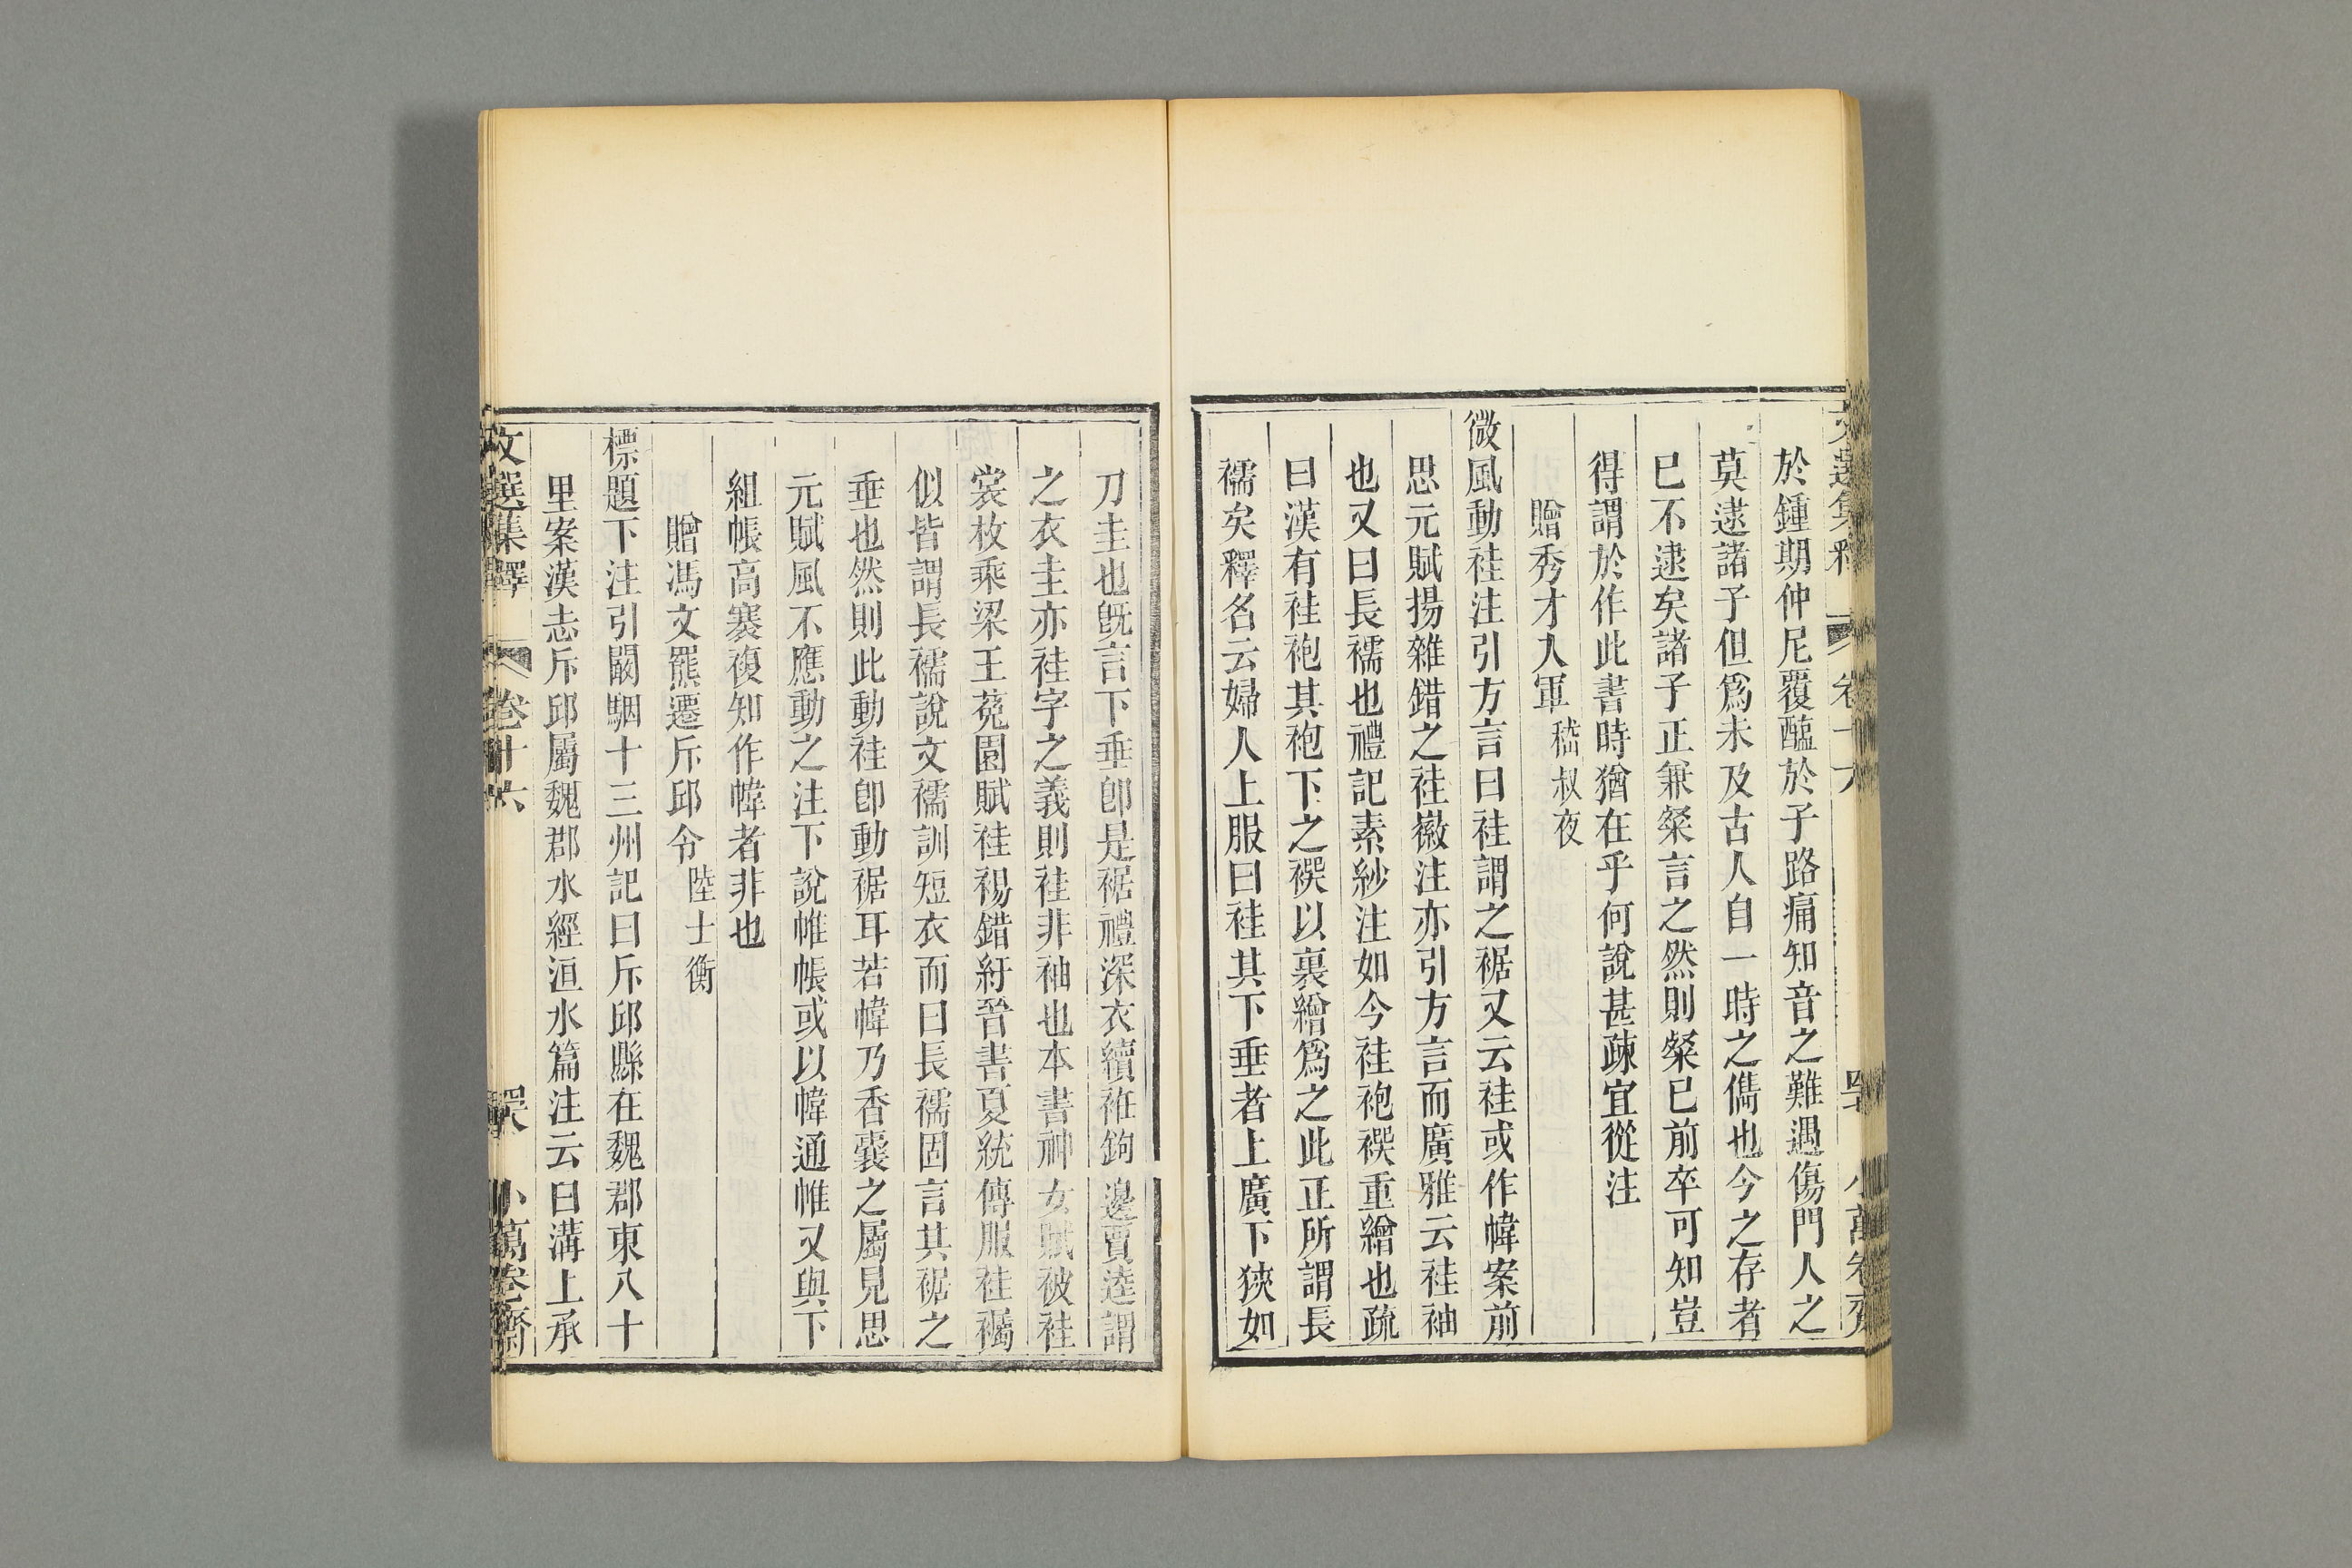 於鍾期仲尼覆醢於子路痛知音之難遇傷門人之
莫逮諸子但爲未及古人自一時之儁也今之存者
已不逮矣諸子正兼粲言之然則粲已前卒可知豈
得謂於作此書時猶在乎何說甚疎宜從注
贈秀才入軍 嵇叔夜
微風動袿注引方言曰袿謂之裾又云袿或作幃案前
思元賦揚雜錯之袿徽注亦引方言而廣雅云袿袖
也又曰長襦也禮記素紗注如今袿袍襈重繒也疏
曰漢有袿袍其袍下之襈以裏繒爲之此正所謂長
襦矣釋名云婦人上服曰袿其下垂者上廣下狹如
刀圭也既言下垂卽是裾禮深衣續衽鉤邊賈逵謂
之衣圭圭亦袿字之義則袿非袖也本書神女賦被袿
裳枚乘梁王菟園賦袿裼錯紆晉書夏統傳服袿襡
似皆謂長襦說文襦訓短衣而曰長襦固言其裾之
垂也然則此動袿卽動裾耳若幃乃香囊之屬見思
元賦風不應動之注下說帷帳或以幃通帷又與下
組帳高褰複知作幃者非也
贈馮文羆遷斥邱令 陸士衡
標題下注引闞駰十三州記曰斥邱縣在魏郡東八十
里案漢志斥邱屬魏郡水經洹水篇注云白溝上承
文選集釋 卷十六 小萬卷齋